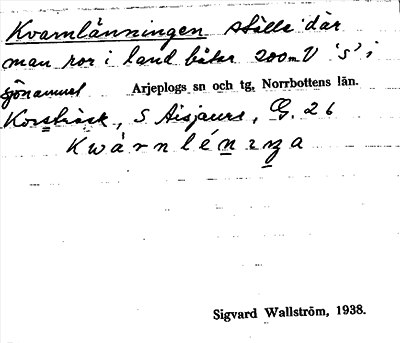 Kvarnlänningen ställe där
man ror i land båtar 200 m V 's' i
sjönamnet Arjeplogs sn och tg. Norrbottens län.
Korsträsk, S Aisjaure, G. 26
Kwàrnlén
Sigvard Wallström, 1938.